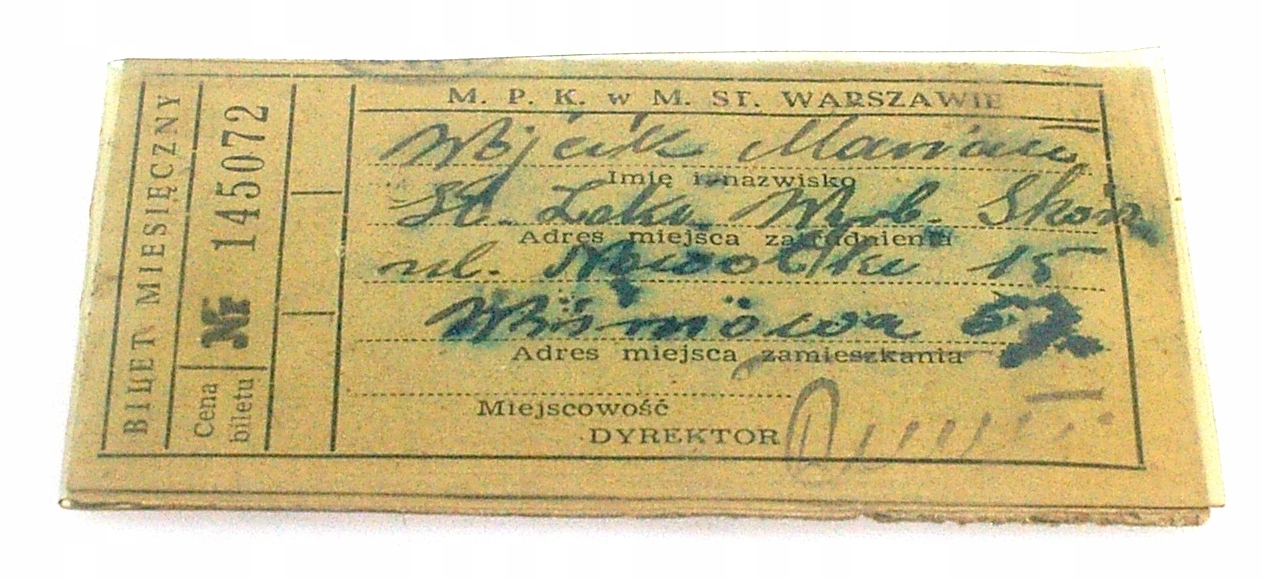 BILET MIESIĘCZNY
Nr 145072
Cena biletu
M. P. K. w M. ST. WARSZAWIE
Wójcik Marian
Imię i nazwisko
St. Zakł. Wyrb. Skórz
Adres miejsca zatrudnienia
ul. Nowotki 15
Wiśniowa 57
Adres miejsca zamieszkania
Miejscowość
DYREKTOR